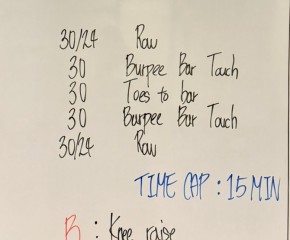 30/24 Row
30 Burpee Bar Touch
30 Toes to bar
30 Burpee Bar Touch
30/24 Row
TIME CAP : 15 MIN
B : Knee raise